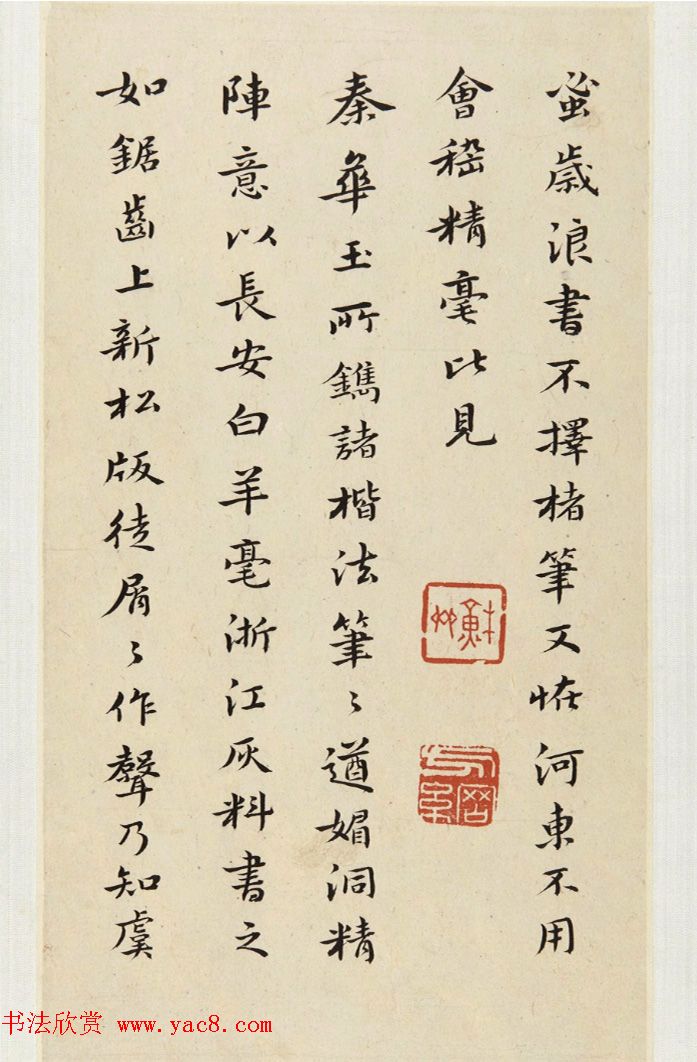 蚤歲浪書不擇楮筆又恠河東不用
會嵇精毫比見
秦華玉所鐫諸楷法筆〻遒媚洞精
陣意以長安白羊毫浙江灰料書之
如鋸齒上新松版徒屑〻作聲乃知虞
书法欣赏 www.yac8.com